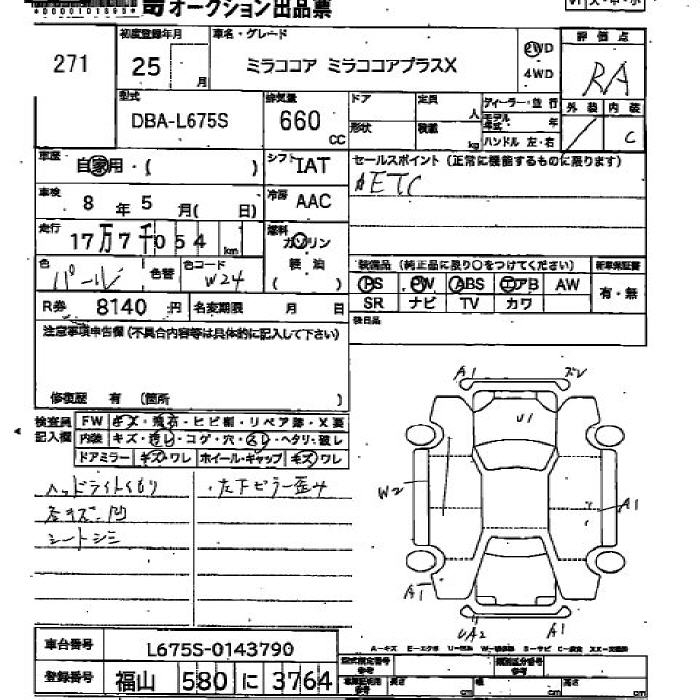 オークション出品票
271
初度登録年月 25 月
車名・グレード ミラココア ミラココアプラスX
2WD
4WD
評価点 RA
型式 DBA-L675S
排気量 660 CC
ドア 定員 人
形状 積載 kg
ディーラー・並行
モデル年式 年
ハンドル 左・右
外装 内装 C
車歴 自家用・( )
シフト IAT
セールスポイント (正常に機能するものに限ります)
ETC
車検 8 年 5 月( 日)
冷房 AAC
走行 17万7千054 km
燃料 ガソリン 軽油 ( )
色 パール 色替 色コード W24
装備品 (純正品に限り○をつけてください) 新車保証書
PS PW ABS エアB AW 有・無
SR ナビ TV カワ
R券 8140 円 名変期限 月 日
後日品
注意事項申告欄(不具合内容等は具体的に記入して下さい)
修復歴 有 (箇所 )
検査員記入欄
FW キズ・飛石・ヒビ割・リペア跡・X要
内装 キズ・汚レ・コゲ・穴・スレ・ヘタリ・破レ
ドアミラー キズワレ ホイール・キャップ キズワレ
ヘッドライトくもり ・左下ピラー歪み
各キズ・凹
シートシミ
A1
U1
W2
A1
A1
UA2
A1
A-キズ E-エクボ
車台番号 L675S-0143790
登録番号 福山 580 に 3764
型式指定番号 類別区分番号
長さ cm 幅 cm 高さ cm